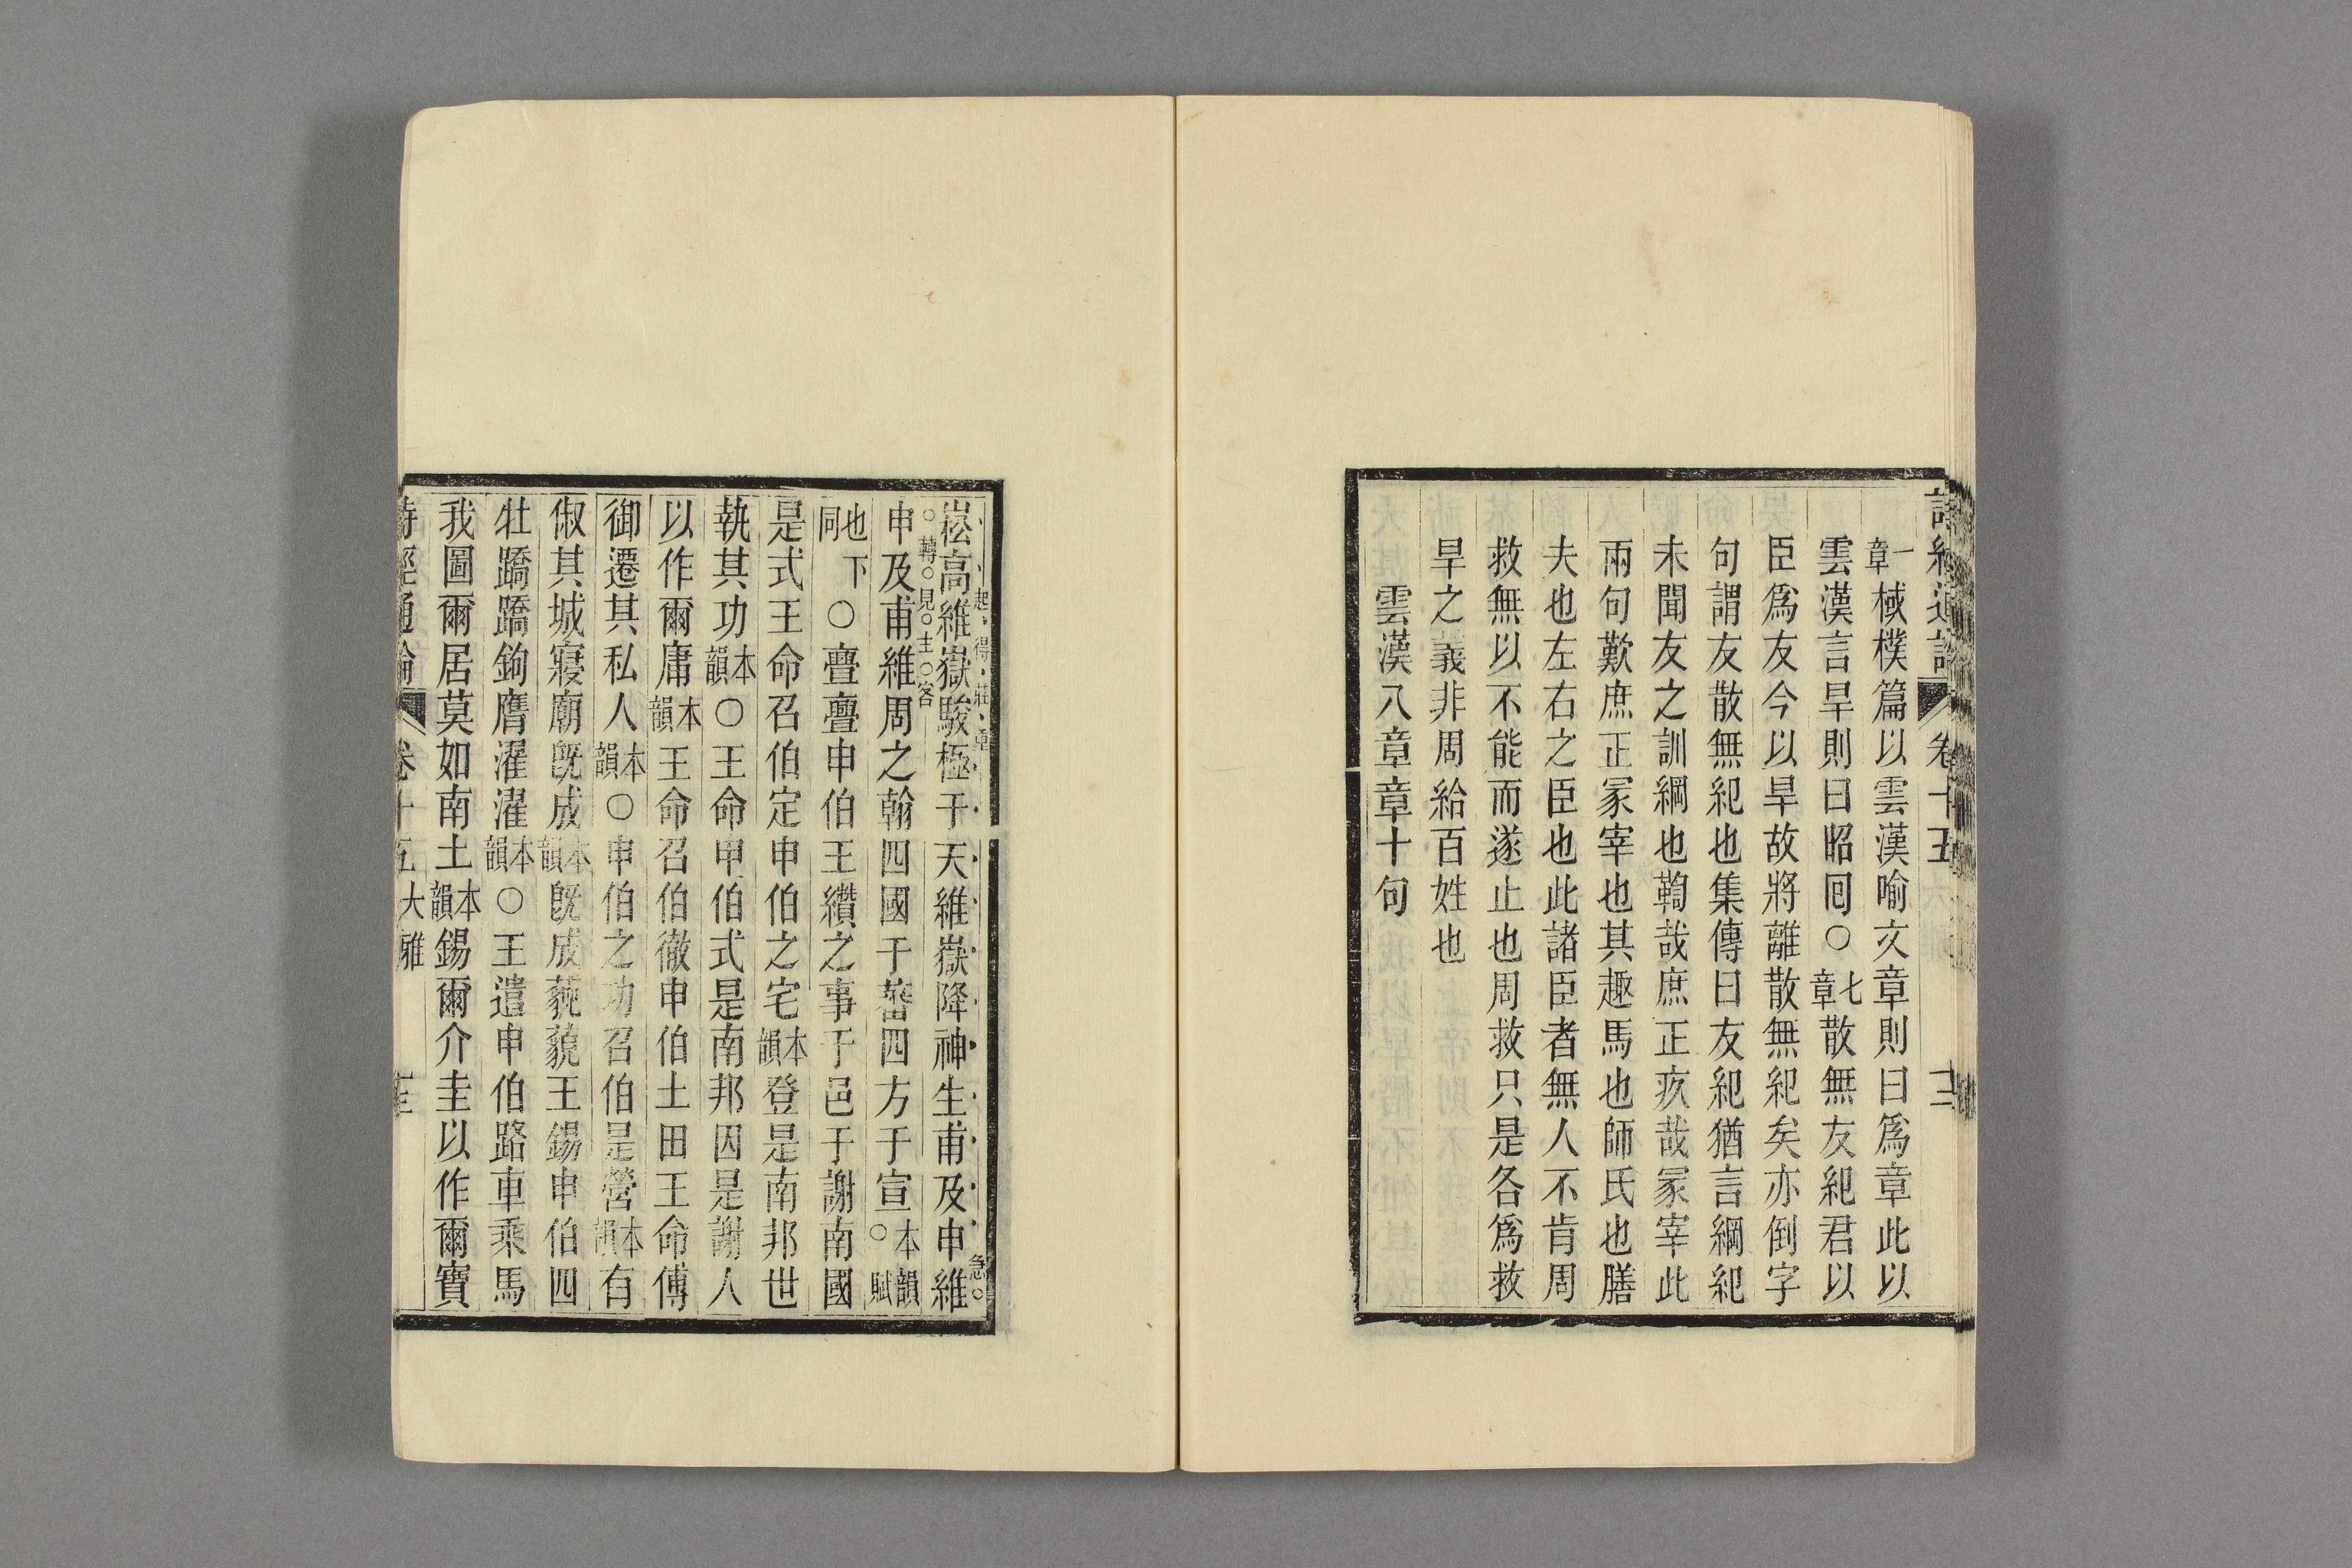 詩經通論 卷十五 十二
一章棫樸篇以雲漢喻文章則曰爲章此以
雲漢言旱則曰昭囘○七章散無友紀君以
臣爲友今以旱故將離散無紀矣亦倒字
句謂友散無紀也集傳曰友紀猶言綱紀
未聞友之訓綱也鞫哉庶正疚哉冢宰此
兩句歎庶正冢宰也其趣馬也師氏也膳
夫也左右之臣也此諸臣者無人不肯周
救無以不能而遂止也周救只是各爲救
旱之義非周給百姓也
雲漢八章章十句
起得莊重
急○
崧高維嶽駿極于天維嶽降神生甫及申維
○轉○見○主○客
申及甫維周之翰四國于蕃四方于宣○本韻賦
也下同○亹亹申伯王纘之事于邑于謝南國
是式王命召伯定申伯之宅本韻登是南邦世
執其功本韻○王命申伯式是南邦因是謝人
以作爾庸本韻王命召伯徹申伯土田王命傅
御遷其私人本韻○申伯之功召伯是營本韻有
俶其城寢廟旣成本韻旣成藐藐王錫申伯四
牡蹻蹻鉤膺濯濯本韻○王遣申伯路車乘馬
我圖爾居莫如南土本韻錫爾介圭以作爾寶
詩經通論 卷十五 大雅 十三